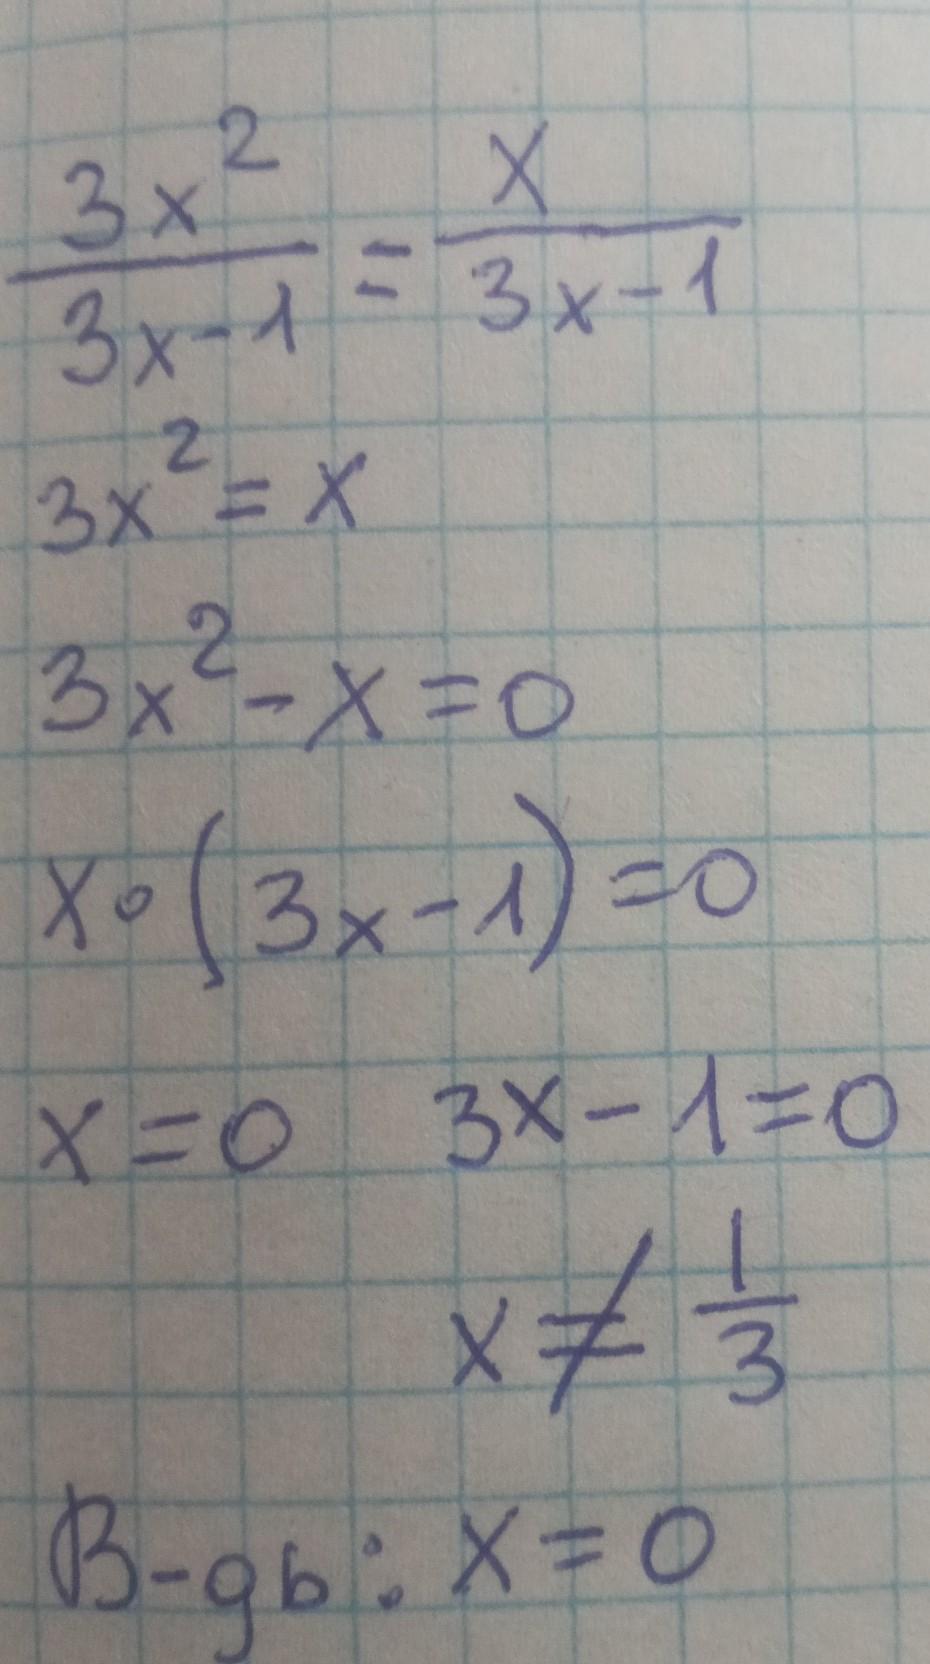 3x²/3x-1 = x/3x-1
3x² = x
3x² - x = 0
x∘(3x-1) = 0
x = 0 3x - 1 = 0
x ≠ 1/3
В-дь: x = 0